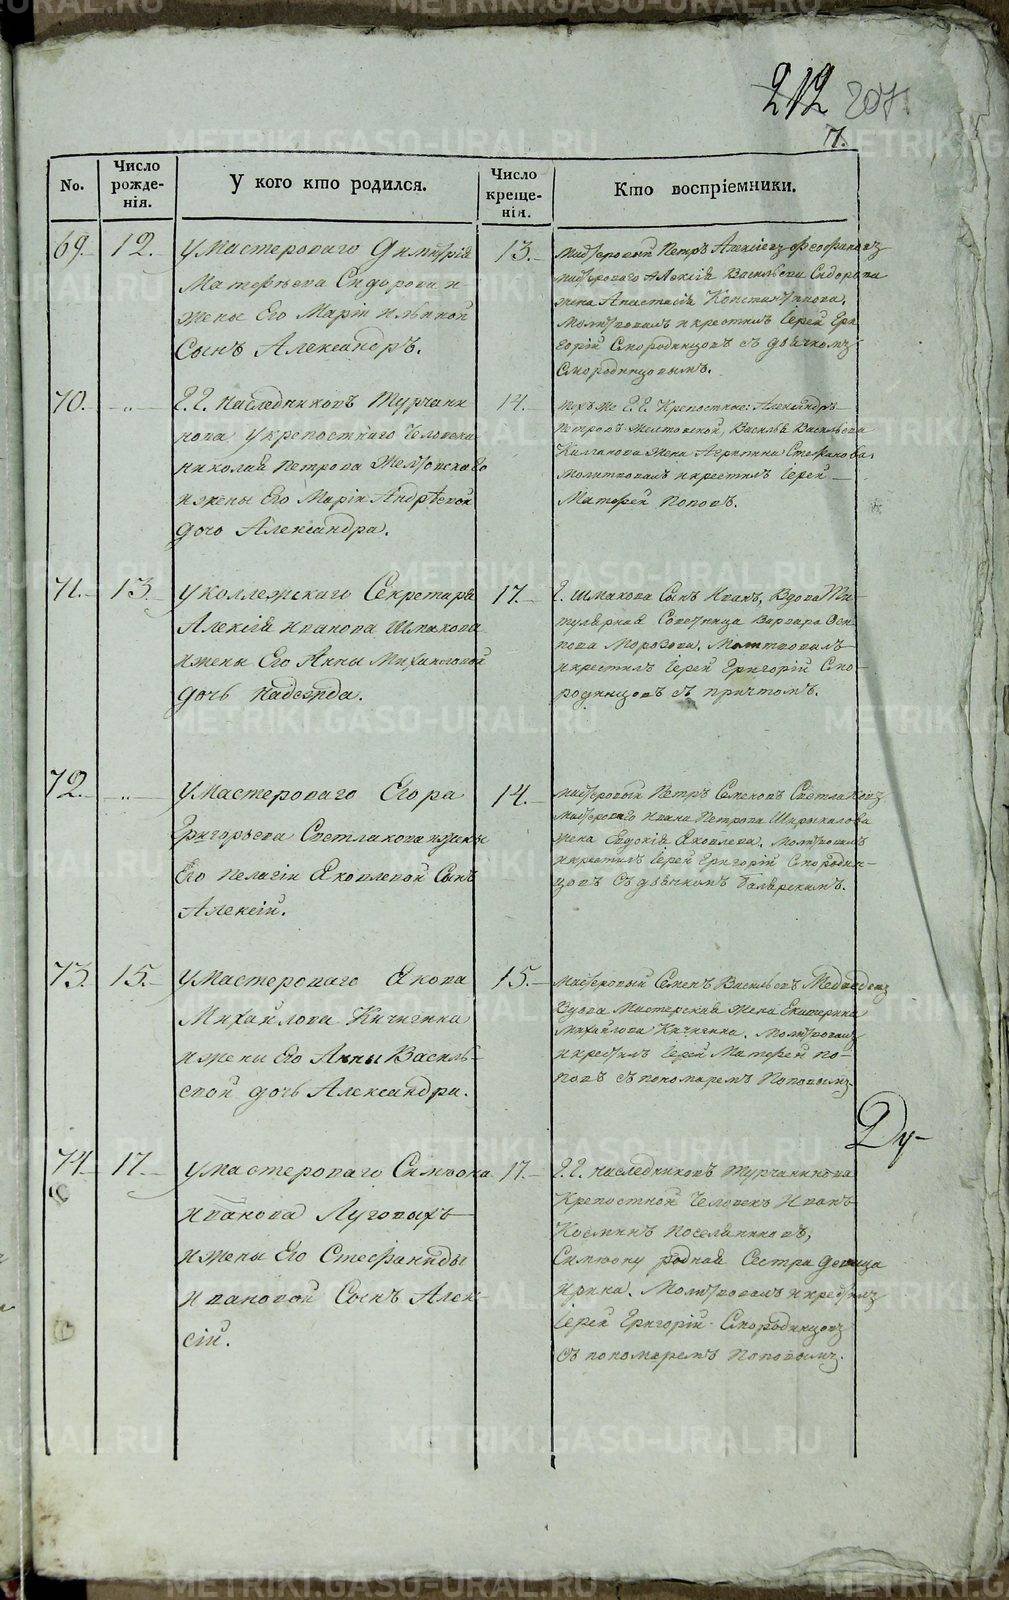 212 207.
7.
No.
Число рожденія.
У кого кто родился.
Число крещенія.
Кто воспріемники.
69. 12.
У Мастероваго Димитрія
Матвѣева Сидорова и
жены Его Маріи Ильиной
Сынъ Александръ.
13.
Мастеровый Петръ Алексѣевъ Феофановъ
мастероваго Алексія Васильева Сидорова
жена Анастасія Константинова.
Молитвовалъ и крестилъ Іерей Гри
горій Смородинцовъ съ дьячкомъ
Смородинцовымъ.
70. -"-
Г.Г. Наслѣдниковъ Турчани
нова у крепостнаго Человека
Николая Петрова Желтовскаго
и жены Его Маріи Андрѣевой
дочь Александра.
14.
тѣхъ же Г.Г. Крепостные: Александръ
Петровъ Желтовской, Василья Васильева
Калганова жена Агрипина Стефанова.
Молитвовалъ и крестилъ Іерей
Матфей Поповъ.
71. 13.
У коллежскаго Секретаря
Алексія Иванова Шмакова
и жены Его Анны Михайловой
дочь Надежда.
17.
Г. Шмакова Сынъ Иванъ, Вдова Ти-
тулярная Советница Варвара Оси
пова Морозова. Молитвовалъ
и крестилъ Іерей Григорій Смо-
родинцовъ съ причтомъ.
72. -"-
У Мастероваго Егора
Григорьева Светлакова и жены
Его Пелагіи Яковлевой Сынъ
Алексій.
14.
мастеровый Петръ Семеновъ Светлаковъ
мастероваго Ивана Петрова Ширыкалова
жена Евдокія Яковлева. Молитвовалъ
и крестилъ Іерей Григорій Смородин-
цовъ съ дьячкомъ
73. 15.
У Мастероваго Якова
Михайлова Кичигина
и жены Его Анны Василь-
евой дочь Александра.
15.
Мастеровый Семенъ Васильевъ Медведевъ
Вдова Мастерская жена Екатерина
Михайлова Кичигина. Молитвовалъ
и крестилъ Іерей Матфей По-
повъ съ пономаремъ Поповымъ.
Ду-
74. 17.
У мастероваго Симеона
Иванова Луговыхъ
и жены Его Стефаниды
Ивановой Сынъ Алек-
сій.
17.
Г.Г. Наследниковъ Турчанинова
Крепостной Человекъ Иванъ
Козминъ Поселяниновъ,
Симеону родная Сестра девица
Ирина. Молитвовалъ и крестилъ
Іерей Григорій Смородинцовъ
съ пономаремъ Поповымъ.
METRIKI.GASO-URAL.RU